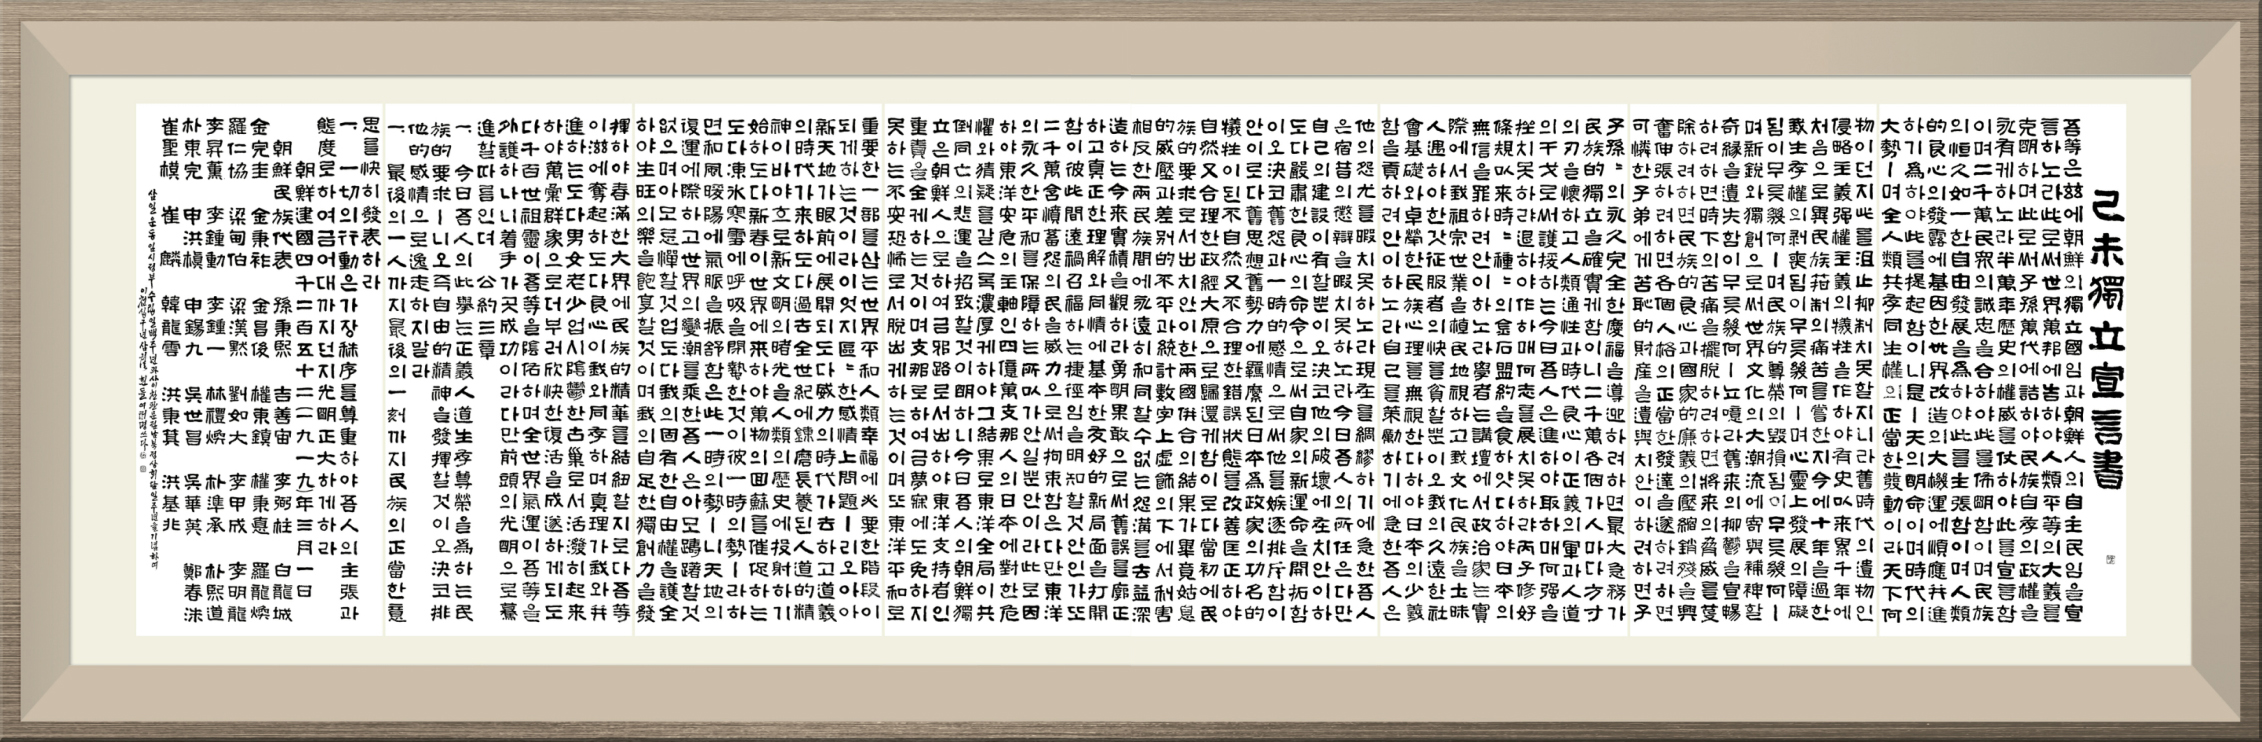 己未獨立宣言書
吾等은玆에朝鮮의獨立國임과朝鮮人의自主民임을宣
言하노라此로써世界萬邦에告하야人類平等의大義를
克明하며此로써子孫萬代에誥하야民族自存의政權을
永有케하노라半萬年歷史의權威를仗하야此를宣言함
이며二千萬民衆의誠忠을合하야此를佈明함이며民族
의恒久如一한自由發展을爲하야此를主張함이며人類
的良心의發露에基因한世界改造의大機運에順應幷進
하기爲하야此를提起함이니是ㅣ天의明命이며時代의
大勢ㅣ며全人類共存同生權의正當한發動이라天下何
物이던지此를沮止抑制치못할지니라舊時代의遺物인
侵略主義强權主義의犧牲을作하야有史以來累千年에
처음으로異民族箝制의痛苦를嘗한지今에十年을過한
我生存權의剝喪됨이무릇幾何ㅣ며心靈上發展의障礙
됨이무릇幾何ㅣ며民族的尊榮의毁損됨이무릇幾何ㅣ
며新銳와獨創으로써世界文化의大潮流에寄與補裨할
奇緣을遺失함이무릇幾何ㅣ뇨噫라舊來의抑鬱을宣暢
하려하면時下의苦痛을擺脫하려하면將來의脅威를芟
除하려하면民族的良心과國家的廉義의壓縮銷殘을興
奮伸張하려하면各個人格의正當한發達을遂하려하면
可憐한子弟에게苦恥的財産을遺與치안이하려하면子
子孫〃의永久完全한慶福을導迎하려하면最大急務가
民族的獨立을確實케함이니二千萬各個가人마다方寸
의刃을懷하고人類通性과時代良心이正義의軍과人道
의干戈로써護援하는今日吾人은進하야取하매何强을
挫치못하랴退하야作하매何志를展치못하랴丙子修好
條規以來時〃種〃의金石盟約을食하얏다하야日本의
無信을罪하려안이하노라學者는講壇에서政治家는實
際에서我祖宗世業을植民地視하고我文化民族을土昧
人遇하야한갓征服者의快를貪할뿐이오我의久遠한社
會基礎와卓犖한民族心理를無視한다하야日本의少義
함을責하려안이하노라自己를策勵하기에急한吾人은
他의怨尤를暇치못하노라現在를綢繆하기에急한吾人
은宿昔의懲辯을暇치못하노라今日吾人의所任은다만
自己의建設이有할뿐이오決코他의破壞에在치안이하
도다嚴肅한良心의命令으로써自家의新運命을開拓함
이오決코舊怨과一時的感情으로써他를嫉逐排斥함이
안이로다舊思想舊勢力에羈縻된日本爲政家의功名的
犧牲이된不自然又不合理한錯誤狀態를改善匡正하야
自然又合理한政經大原으로歸還케함이로다當初에民
族的要求로서出치안이한兩國倂合의結果가畢竟姑息
的威壓과差別的不平과統計數字上虛飾의下에서利害
相反한兩民族間에永遠히和同할수없는怨溝를去益深
造하는今來實積을觀하라勇明果敢으로써舊誤를廓正
하고眞正한理解와同情에基本한友好的新局面을打開
함이彼此間遠禍召福하는捷徑임을明知할것안인가또
二千萬含憤蓄怨의民을威力으로써拘束함은다만東洋
의永久한平和를保障하는所以가안일뿐안이라此로因
하야東洋安危의主軸인四億萬支那人의日本에對한危
懼와猜疑를갈스록濃厚케하야그結果로東洋全局이共
倒同亡의悲運을招致할것이明하니今日吾人의朝鮮獨
立은朝鮮人으로하여금邪路로서出하야東洋支持者인
重責을全케하는것이며支那로하여금夢寐에도免하지
못하는不安恐怖로서脫出케하는것이며또東洋平和로
重要한一部를삼는世界平和人類幸福에必要한階段이
되게하는것이라이엇지區〃한感情上問題ㅣ리오아아
新天地가眼前에展開되도다威力의時代가去하고道義
의時代가來하도다過去全世紀에鍊磨長養된人道的精
神이바야흐로新文明의曙光을人類의歷史에投射하기
始하도다新春이世界에來하야萬物의回蘇를催促하는
도다凍氷寒雪에呼吸을閉蟄한것이彼一時의勢ㅣ라하
면和風暖陽에氣脈을振舒함은此一時의勢ㅣ니天地의
復運에際하고世界의變潮를乘한吾人은아모躊躇할것
없으며아모忌憚할것없도다我의固有한自由權을護全
하야生旺의樂을飽享할것이며我의自足한獨創力을發
揮하야春滿한大界에民族的精華를結紐할지로다吾等
이玆에奮起하도다良心이我와同存하며眞理가我와幷
進하는도다男女老少업시陰鬱한古巢로서活潑히起來
하야萬彙群象으로더부러欣快한復活을成遂하게되도
다千百世祖靈이吾等을陰佑하며全世界氣運이吾等을
外護하나니着手가곳成功이라다만前頭의光明으로驀
進할따름인뎌 公約三章
一. 今日吾人의此擧는正義人道生存尊榮을爲하는民
族的要求ㅣ니오즉自由的精神을發揮할것이오決코排
他的感情으로逸走하지말라
一. 最後의一人까지最後의一刻까지民族의正當한意
思를快히發表하라
一. 一切의行動은가장秩序를尊重하야吾人의主張과
態度로하여금어대까지던지光明正大하게하라
朝鮮建國四千二百五十二(一九一九)年三月一日
朝鮮民族代表 孫秉熙 吉善宙 李弼柱 白龍城
金完圭 金秉祚 金昌俊 權東鎭 權秉悳 羅龍煥
羅仁協 梁甸伯 梁漢默 劉如大 李甲成 李明龍
李昇薰 李鍾勳 李鍾一 林禮煥 朴準承 朴熙道
朴東完 申洪植 申錫九 吳世昌 吳華英 鄭春洙
崔聖模 崔麟 韓龍雲 洪秉箕 洪基兆